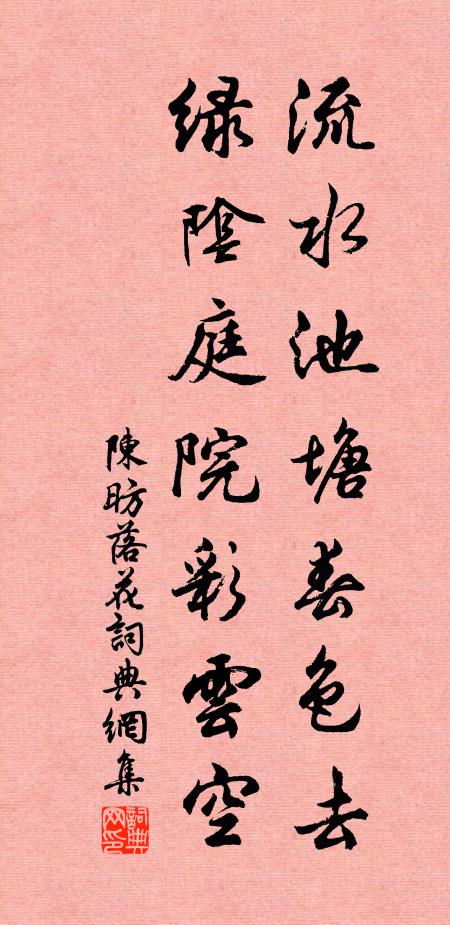 流水池塘春色去
绿陰庭院彩雲空
陳昉落花詞典網集
詞典网印